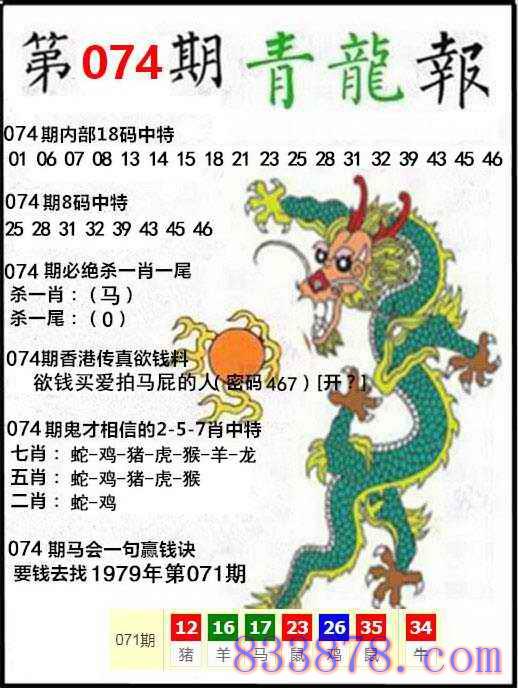 第074期青龍報
074期内部18码中特
01 06 07 08 13 14 15 18 21 23 25 28 31 32 39 43 45 46
074期8码中特
25 28 31 32 39 43 45 46
074期必绝杀一肖一尾
杀一肖：（马）
杀一尾：（0）
074期香港传真欲钱料
欲钱买爱拍马屁的人(密码467)[开?]
074期鬼才相信的2-5-7肖中特
七肖：蛇-鸡-猪-虎-猴-羊-龙
五肖：蛇-鸡-猪-虎-猴
二肖：蛇-鸡
074期马会一句赢钱诀
要钱去找1979年第071期
071期 12 16 17 23 26 35 34
猪 羊 马 鼠 鸡 鼠 牛
833878.com